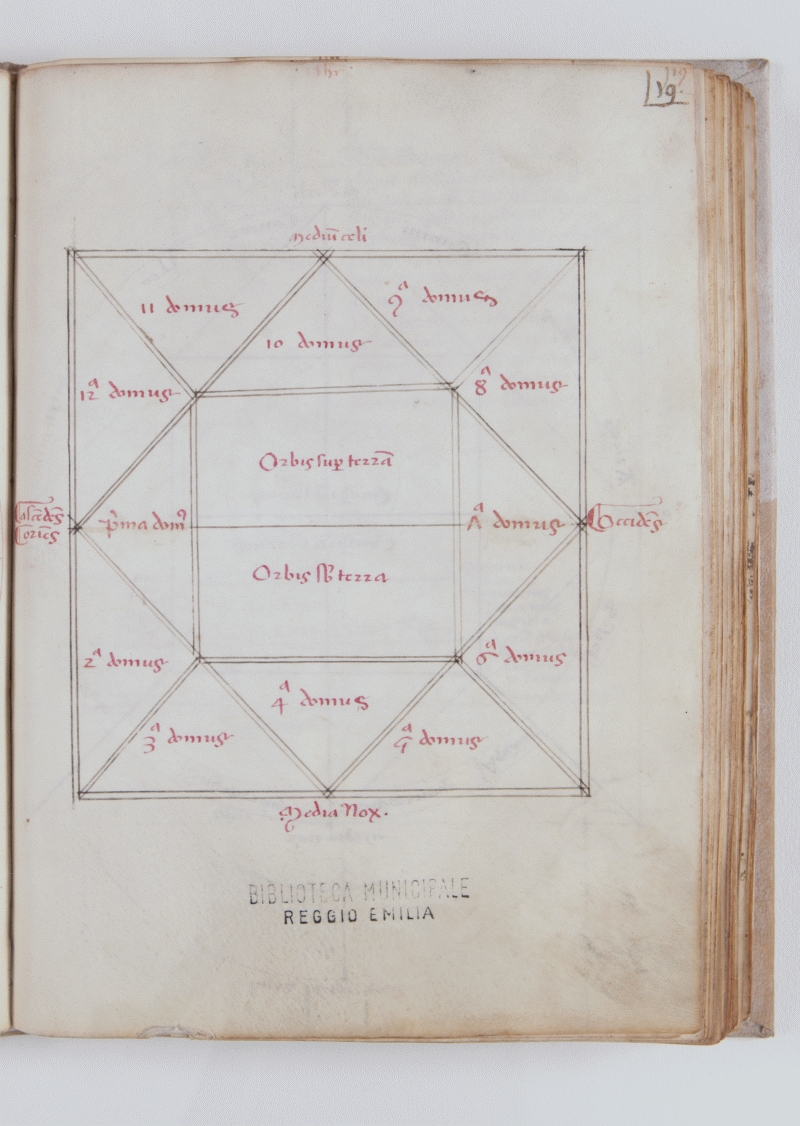 19
Mediū celi
11 domus
9ª domus
10 domus
12ª domus
8ª domus
Orbis suꝑ terrā
Ascēdēs
Oriēs
p̄ma dom⁹
ʌª domus
Occidēs
Orbis sb̄ terra
2ª domus
6ª domus
4ª domus
3ª domus
5ª domus
Media Nox.
BIBLIOTECA MUNICIPALE
REGGIO EMILIA